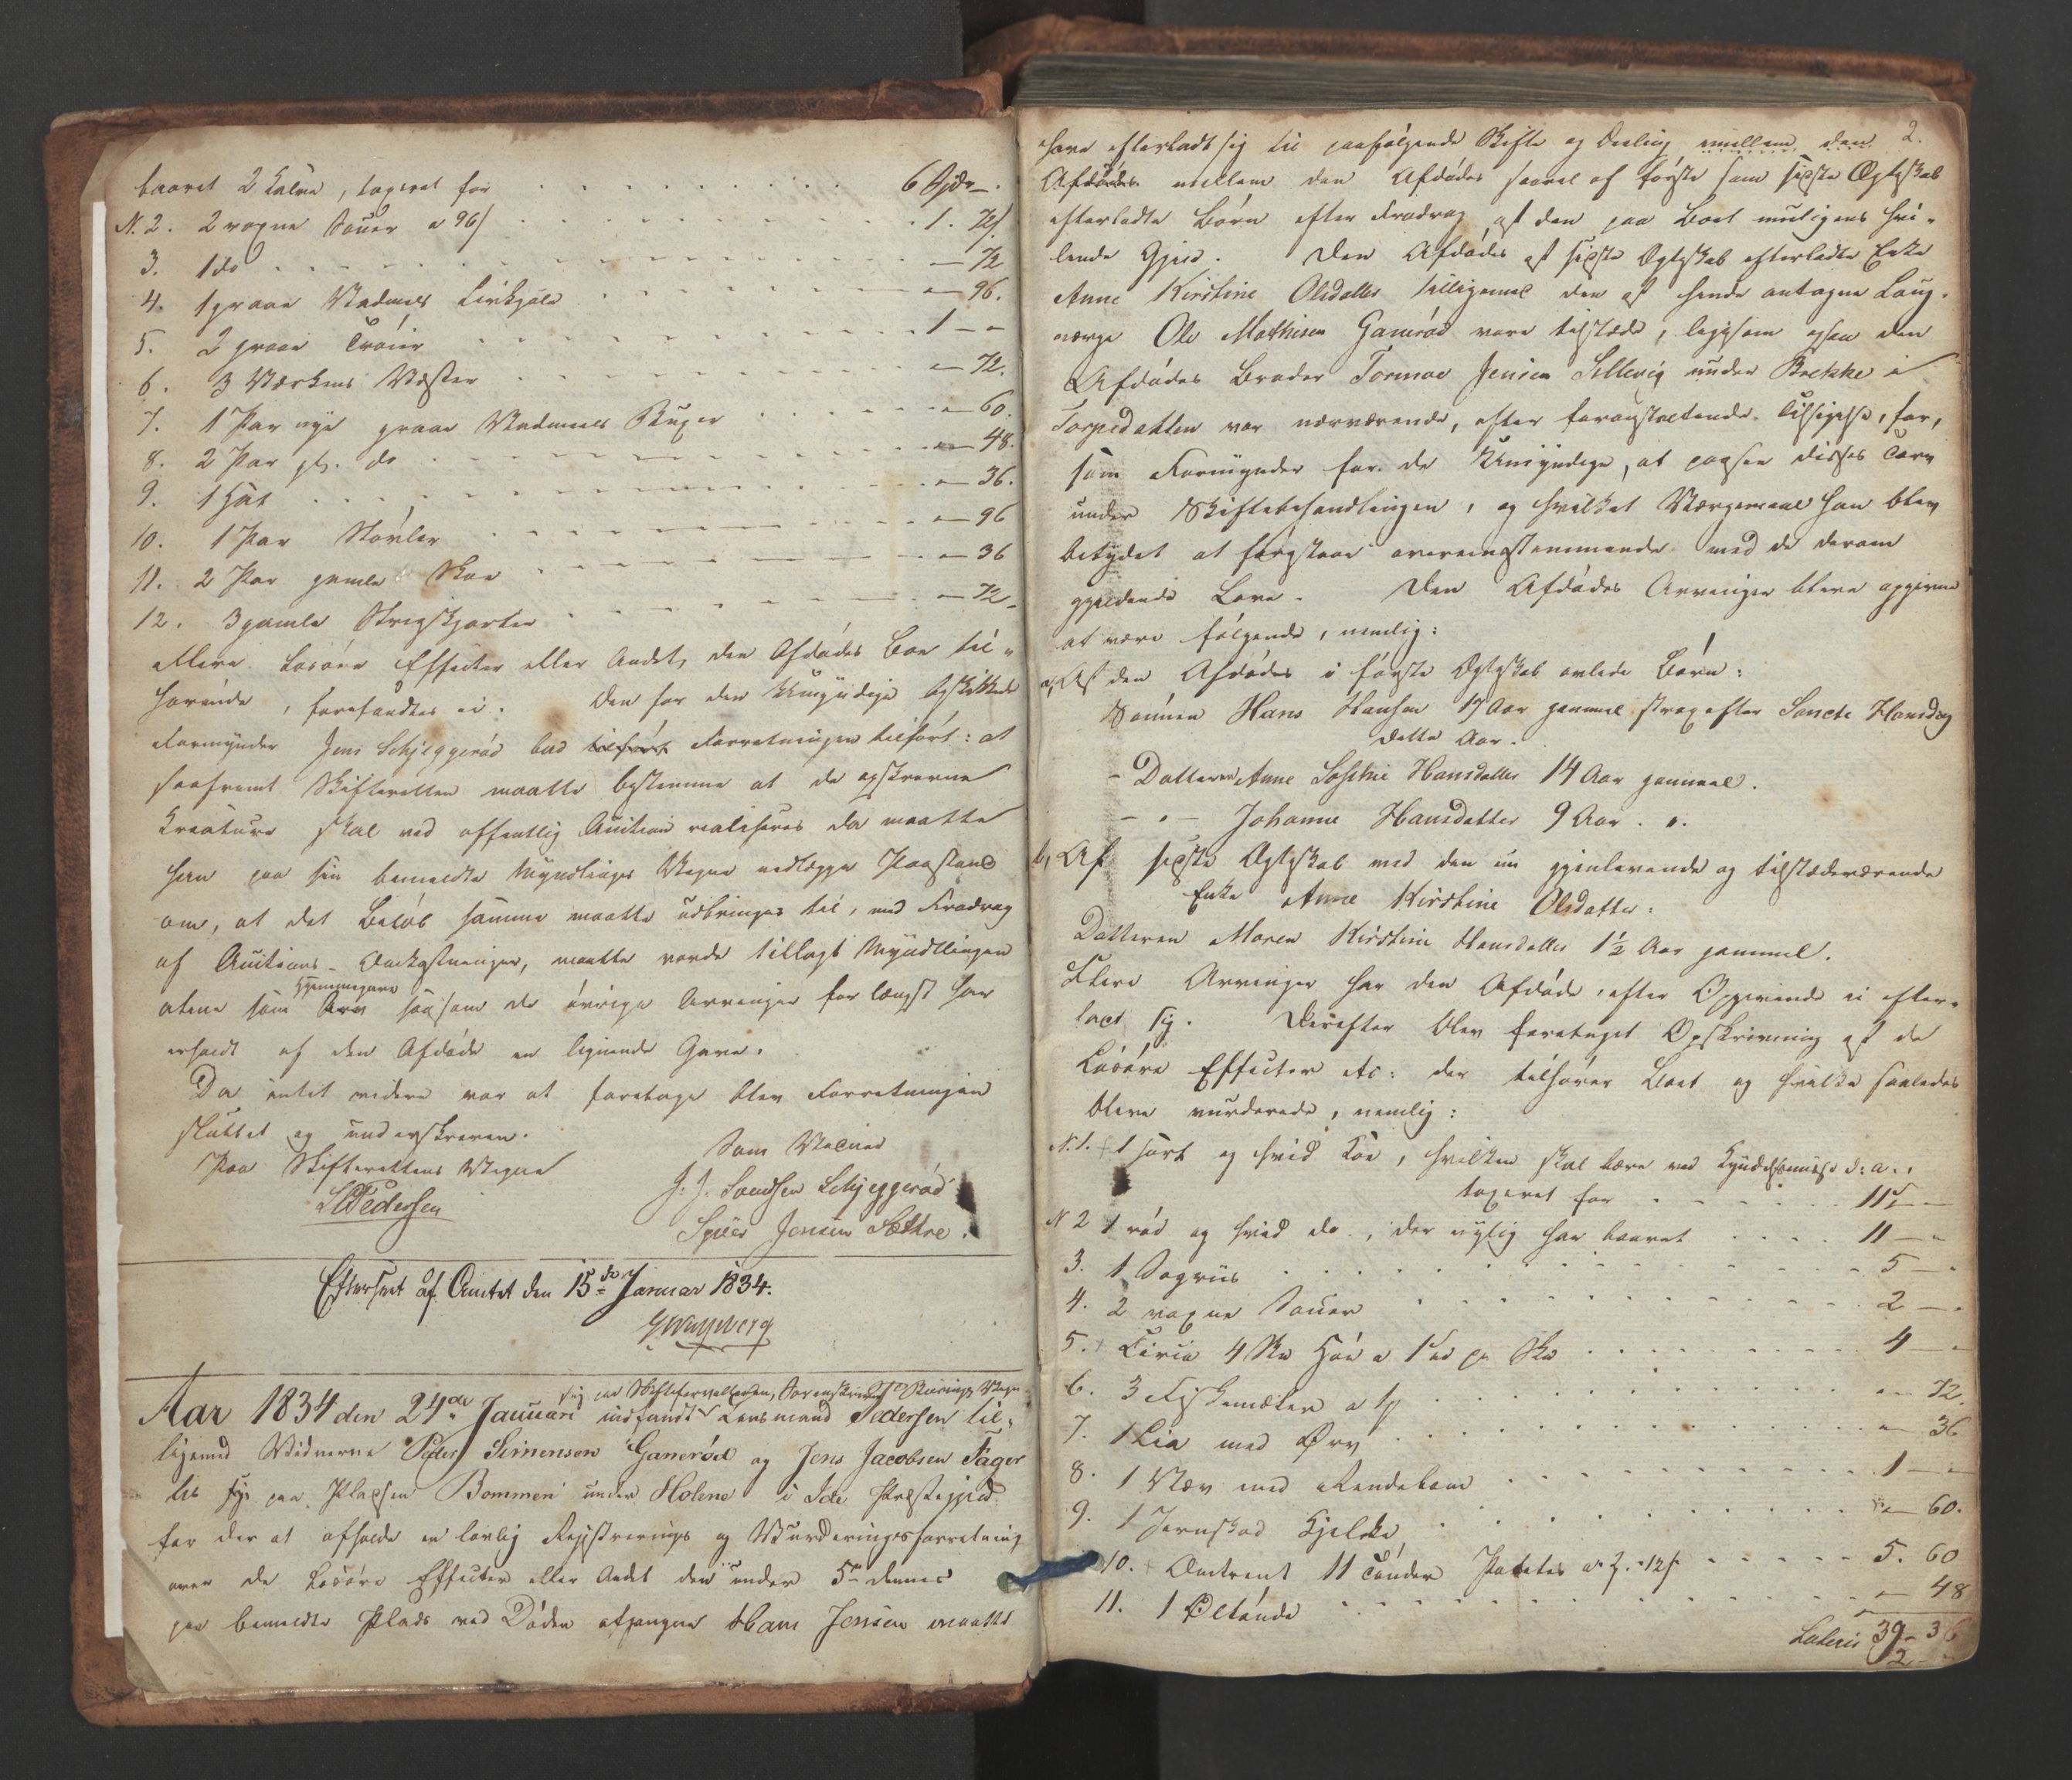 baaret 2 Kalve, taxeret for . . . 6 Spdr –.
N. 2. 2 voxne Souer a 96 s . . . 1. 72 s.
3. 1 do . . . – 72
4. 1 graae Vadmels Livkjole . . . – 96.
5. 2 graae Trøier . . . 1 – –
6. 3 Værkens Væster . . . – 72.
7. 1 Par nye graae Vadmels Buxer . . . – 60.
8. 2 Par gl. do . . . – 48.
9. 1 Hat . . . – 36.
10. 1 Par Støvler . . . – 96
11. 2 Par gamle Skoe . . . – 36
12. 3 gamle Strigskjorter . . . – 72.
Mere Løsøre Effecter eller Andet, den Afdødes Boe til-
hørende, forefandtes ei. Den for den Umyndige beskikkede
Formynder Jens Schjeggerød bad tilført Forretningen tilført: at
saafremt Skifteretten maatte bestemme at de opskrevne
Kreature skal ved offentlig Auction realiseres da maatte
han paa sin bemeldte Myndlings Vegne nedlægge Paastand
om, at det Beløb samme maatte udbringes til, med Fradrag
af Auctions-Omkostninger, maatte vorde tillagt Myndtlingen
Hjemmegave
alene som Arv saasom de øvrige Arvinger for længst har
erholdt af den Afdøde en lignende Gave.
Da intet videre var at foretage blev Forretningen
sluttet og underskreven.
Paa Skifterettens Vegne
Pedersen
Som Vidner
J. J. Schjeggerød
Jensen Sæthre.
Efterseet af Amtet den 15de Januar 1834.
Aar 1834 den 24de Januari indfandt sig paa Skifteforvalteren, Sorenskriver Vegne Lensmand Pedersen til-
ligemed Vidnerne Peder Simensen Ganerød og Jens Jacobsen Fager
lie sig paa Pladsen Bommen under Holene i Ide Præstegjeld
for der at afholde en lovlig Registrerings og Vurderingsforretning
over de Løsøre Effecter eller Andet den under 5te dennes
paa bemeldte Plads ved Døden afgangne Hans Jensen maatte
2.
have efterladt sig til paafølgende Skifte og Deeling imellem den
Afdødes mellem den Afdødes saavel af første som sidste Ægteskab
efterladte Børn efter Fradrag af den paa Boet muligens hvi-
lende Gjeld. Den Afdødes af sidste Ægteskab efterladte Enke
Anne Kirstine Olsdatter tilligemed den af hende antagne Laug-
værge Ole Mathisen Ganerød vare tilstæde, ligesom ogsaa den
Afdødes Broder Tormod Jensen Sillevig under Brekke i
Torpedahlen var nærværende, efter foranstaltende Tilsigelse, for,
som Formynder for de Umyndige, at paasee disses Tarv
under Skiftebehandlingen, og hvilket Værgemaal han blev
betydet at forestaae overeensstemmende med de derom
gjældende Love. Den Afdødes Arvinger bleve opgivne
at være følgende, nemlig:
a, Af den Afdødes i første Ægteskab avlede Børn:
Sønnen Hans Hansen 17 Aar gammel strax efter Sancte Hansdag
dette Aar.
– Datteren Anne Sophie Hansdatter 14 Aar gammel.
– " – Johanne Hansdatter 9 Aar. ".
b, Af sidste Ægteskab med den nu gjenlevende og tilstædeværende
Enke Anne Kirstine Olsdatter:
Datteren Maren Kirstine Hansdatter 1½ Aar gammel.
Flere Arvinger har den Afdøde, efter Opgivende ei efter-
ladt sig. Derefter blev foretaget Opskrivning af de
Løsøre Effecter etc: der tilhører Boet og hvilke saaledes
bleve vurderede, nemlig:
N. 1. 1 sort og hvid Koe, hvilken skal bære ved Kyndelsmisse d: a:,
taxeret for . . . 11 –
N 2 1 rød og hvid do., der nylig har baaret . . . 11 – –
3. 1 Sogriis . . . 5 – –
4. 2 voxne Souer . . . 2 – –
5. Circa 4 Skd Høe a 1 Spd pr Skd . . . 4 – –
6. 3 . . . – 72.
7. 1 Lia med Orv . . . – 36
8. 1 Væv med Rendebom . . . 1 – –
9. 1 Jernskoed Kjelke . . . – 60.
10. Omtrent 11 Tønder Potetes . . . 5. 60
11. 1 Øltønde . . . – 48
Lateris 39 – 36
2